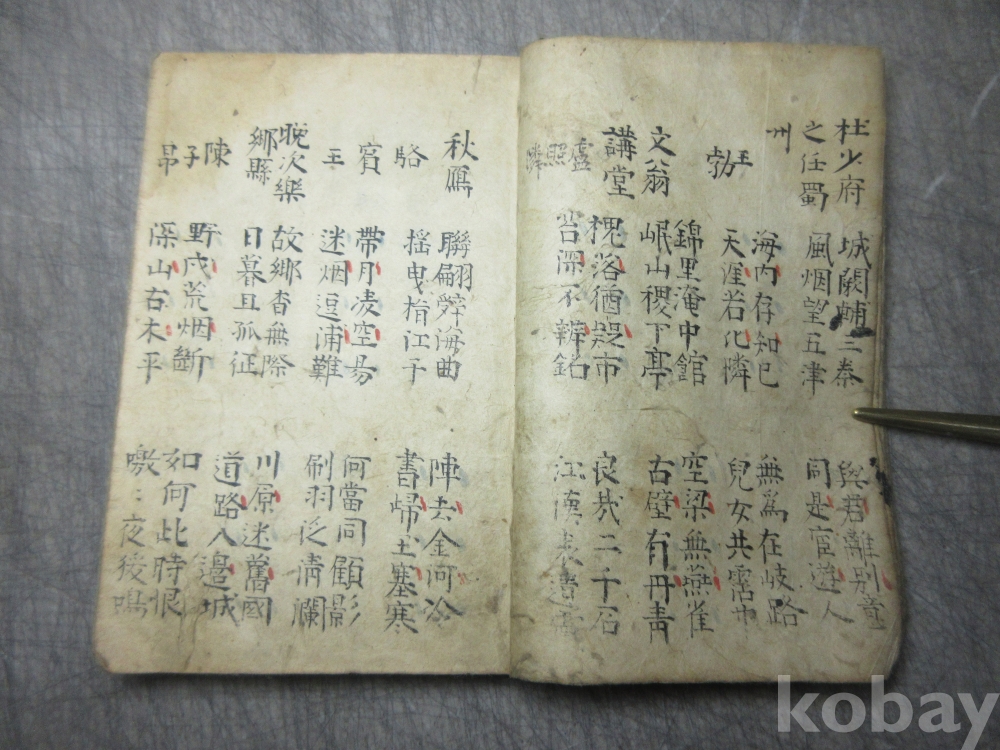 杜少府
之任蜀
州
王
勃
城闕輔三秦
風烟望五津
與君離別意
同是宦遊人
海內存知己
天涯若比憐
無爲在岐路
兒女共霑巾
文翁
講堂
盧照
隣
錦里淹中館
岷山稷下亭
空梁無燕雀
古壁有丹青
槐落猶疑市
苔深不辨銘
良哉二千石
江漢表遺
秋鴈
駱
賓
王
聯翩辞海曲
搖曳指江干
陣去金河冷
書歸玉塞寒
帶月凌空易
迷烟逗浦難
何當同顧影
刷羽泛清瀾
晚次樂
鄉縣
陳
子
昂
故鄉杳無際
日暮且孤征
川原迷舊國
道路入邊城
野戍荒烟斷
深山古木平
如何此時恨
噭〻夜猿鳴
kobay